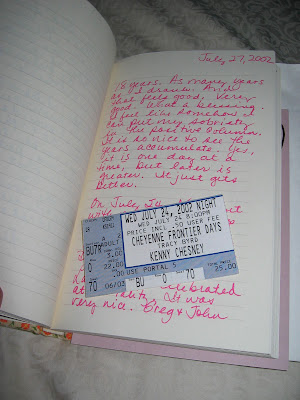 July 27, 2002
18 years. As many years
as I drank. And
that feels good. Very
good. What a blessing.
I feel like somehow I
can put my sobriety
in the positive column.
It is so nice to see the
years accumulate. Yes,
it is one day at a
time, but later is
greater. It just gets
better.
On July 24,
WED JULY 24, 2002 NIGHT
WED JULY 24 8:00PM
PRICE INCL $0 USER FEE
CHEYENNE FRONTIER DAYS
TRACY BYRD
KENNY CHESNEY
USE PORTAL 5
BU7
ADULT
0 22.00
70 06/03 BU 0 70 25.00
celebrated
at
very nice. Greg & John